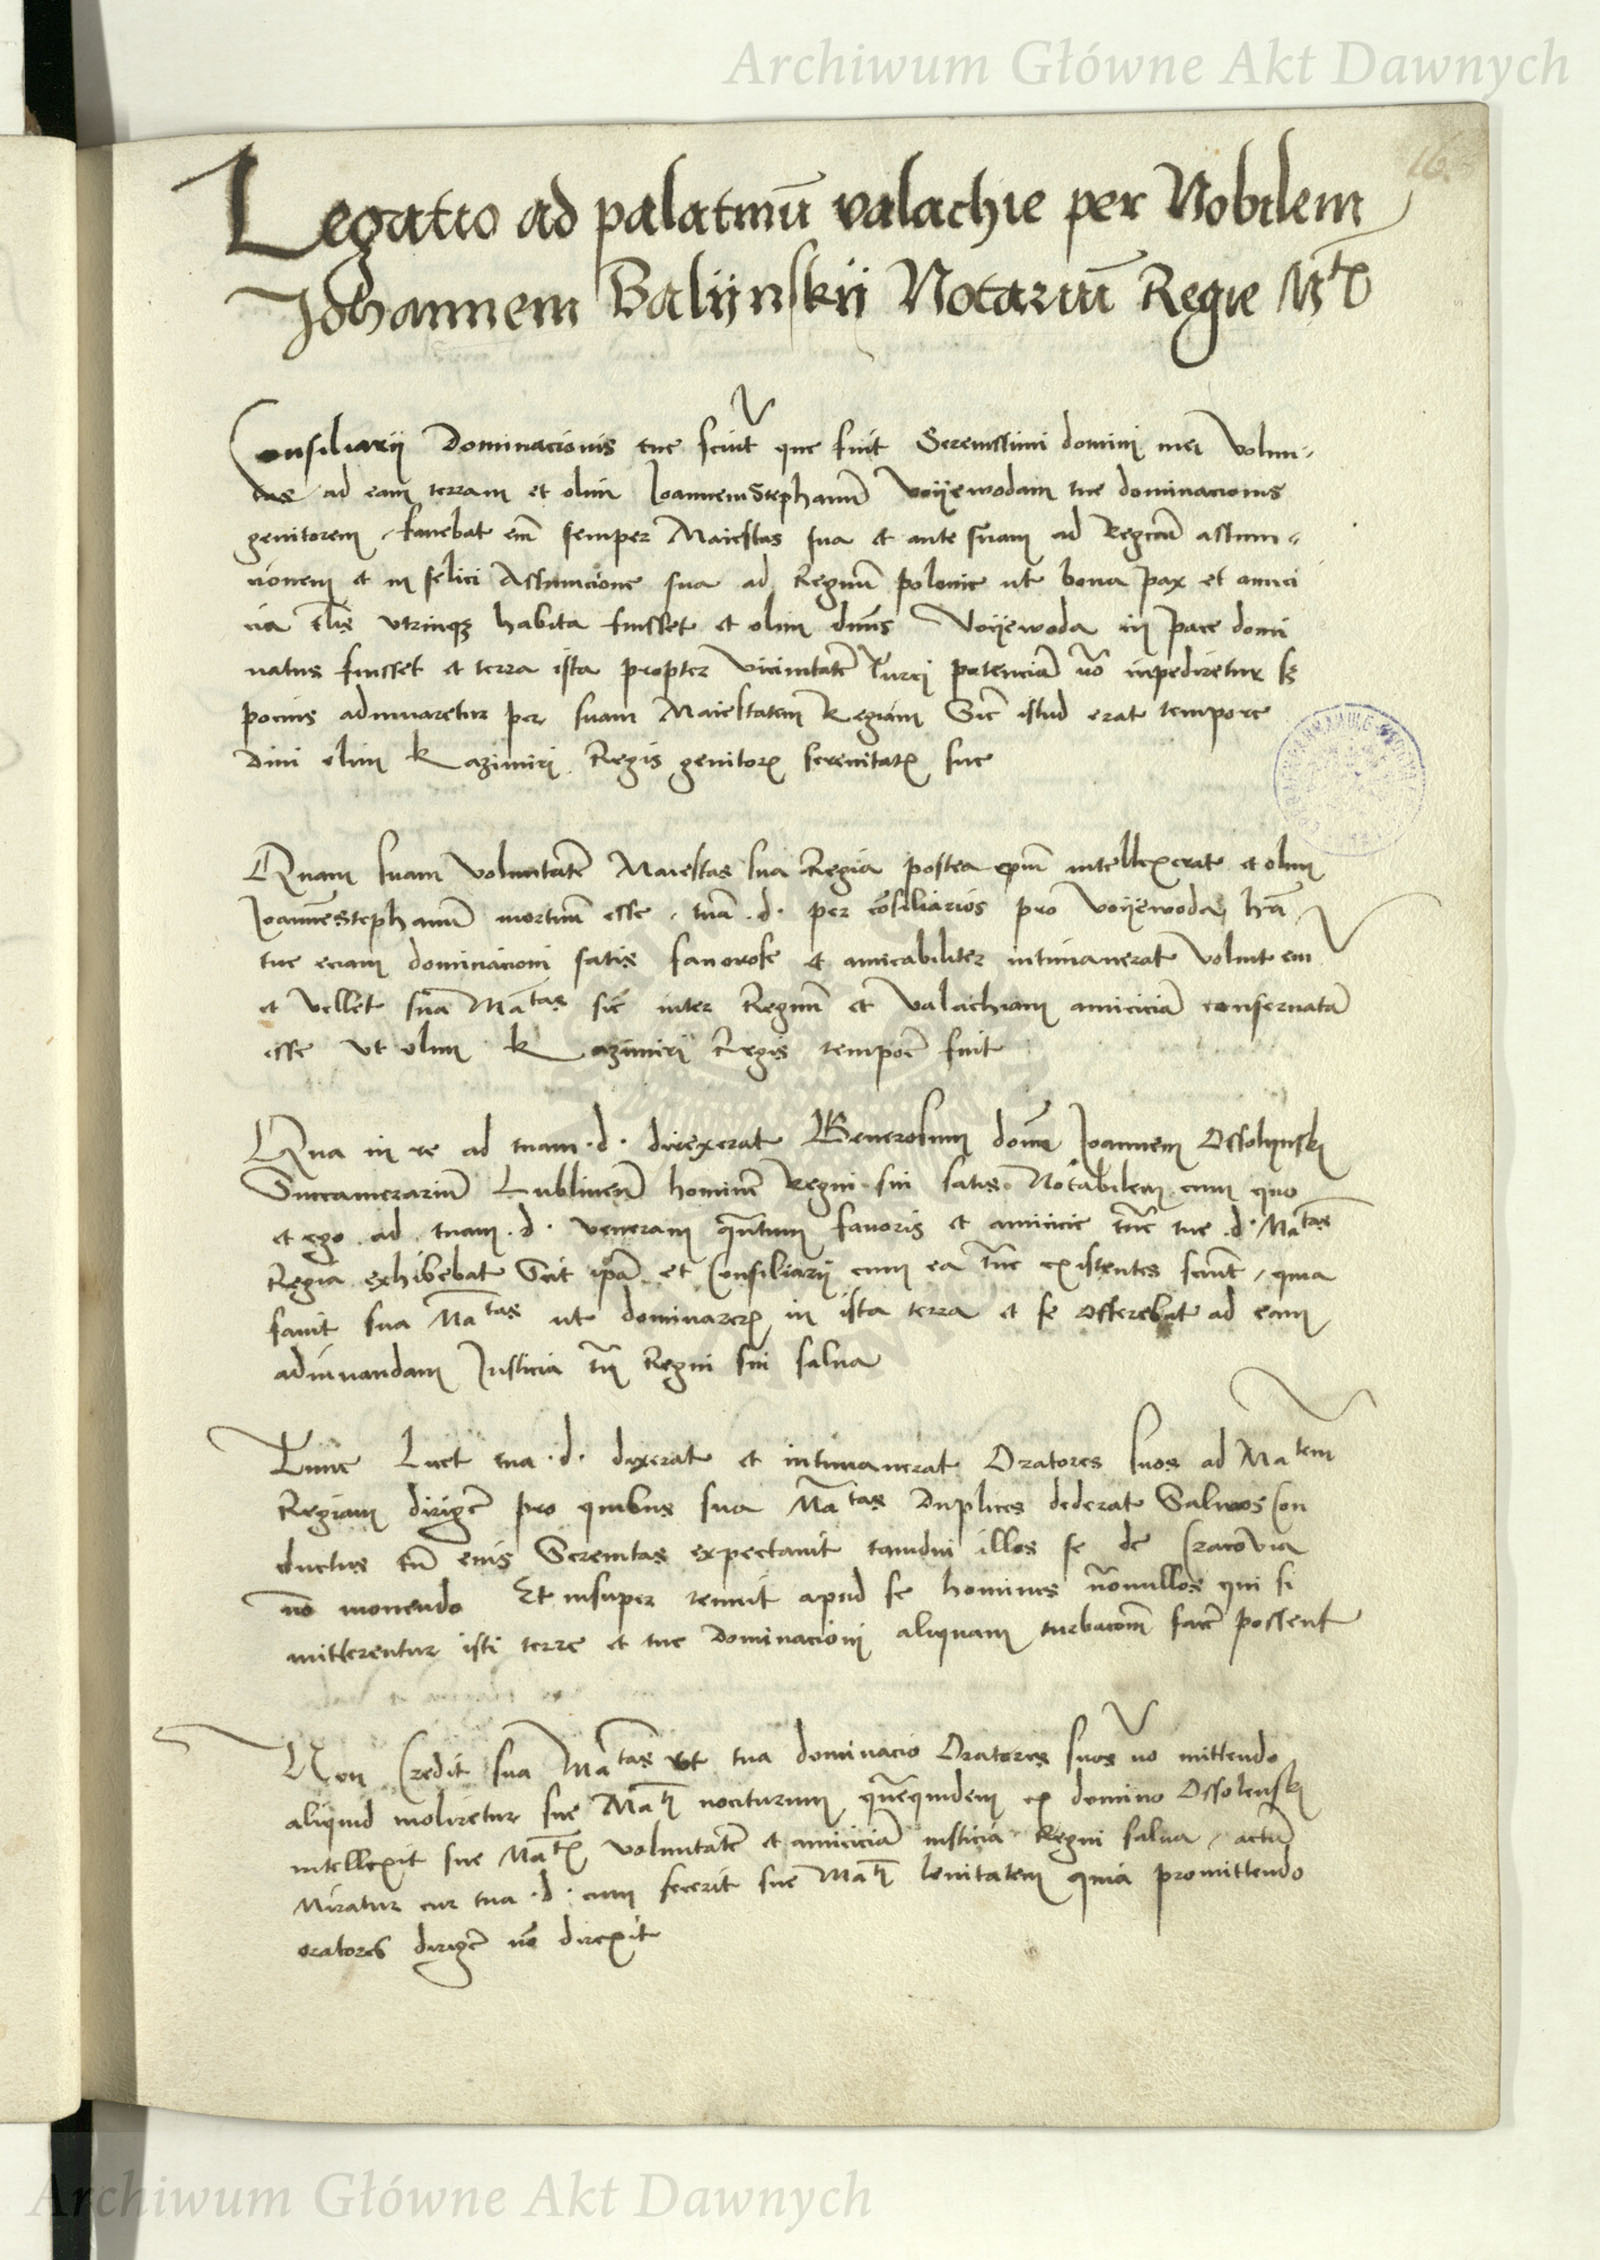 Archiwum Główne Akt Dawnych
16.
Legatio ad palatinū valachie per Nobilem
Johannem Balijnskij Notariū Regie Mtis
Consiliarij Dominacionis tue sciūt que fuit Serenissimi domini mei volun=
tas ad eam terram et olim Joannem Stephanū Voijewodam tue dominacionis
genitorem, favebat em̄ semper Maiestas sua et ante suam ad Regnū assum=
cionem et in felici Assumcione sua ad Regnū polonie ut bona pax et amici
cia utrinqȝ habita fuisset et olim dn̄us Voijewoda in pace domi
natus fuisset et terra ista propter vicinitatē Turci potenciā nō inpediretur sȝ
pocius adiuvaretur per suam Maiestatem Regiam Sic istud erat tempore
Divi olim Kazimiri Regis genitoris serenitatis sue
Quam suam voluntatē Maiestas sua Regia postea quū intellexerat et olim
JoannēStephanū mortuū esse, tuā .d. per cōsiliarios pro Voijewoda
tue eciam dominacioni satis favorose et amicabiliter intimaverat volūtem
et vellet sua Mātas sic inter Regnū et Valachiam amiciciā conservatā
esse ut olim Kazimiri Regis tempore fuit
Qua in re ad tuam .d. direxerat Generosum domī Joannem Ossolijnskj
Succamerariū Lublineñ hominē Regni sui satis Notabilem cum quo
et ego ad tuam .d. veneram quātum favoris et amicicie tūc tue .d. Mātas
Regia exhibebat Scit ipā et Consiliarij cum ea tūc existentes sciūt, quia
favit sua Mātas ut dominareris in ista terra et se offerebat ad eam
adiuvandam Justicia tn̄ Regni sui salva
Tunc licet tua .d. dixerat et intimaverat Oratores suos ad Matem
Regiam dirigē pro quibus sua Mātas Duplices dederat Salvos Con
ductus cū eius Serenitas expectavit tamdiu illos se de Cracōvia
nō movendo Et insuper tenuit apud se homines nōnullos qui si
mitterentur isti terre et tue Dominacioni aliquam turbacōm facē possent
Non Credit sua Mātas ut tua dominacio Oratores suos nō mittendo
aliquid moliretur sue Māti nociturum quādoquidem ex domino Ossolenskj
intellexit sue Mātis voluntatē et amiciciā iusticia Regni salva,
Miratur cur tua .d. eam fecerit sue Māti levitatem quia promittendo
oratores dirigē nō direxit
Archiwum Główne Akt Dawnych